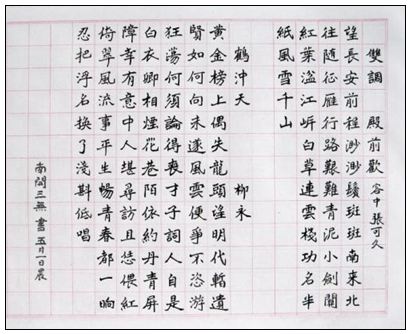 雙調 殿前歡 客中 張可久
望長安前程渺渺鬢斑斑南来北
往随征雁行路艱難青泥小劍關
紅葉湓江岸白草連雲棧功名半
紙風雪千山
鶴冲天 柳永
黄金榜上偶失龍頭望明代暫遺
賢如何向未遂風雲便爭不恣游
狂蕩何須論得喪才子詞人自是
白衣卿相煙花巷陌依約丹青屏
障幸有意中人堪尋訪且恁偎紅
倚翠風流事平生暢青春都一晌
忍把浮名換了淺斟低唱
南 三無 書 五月一日晨